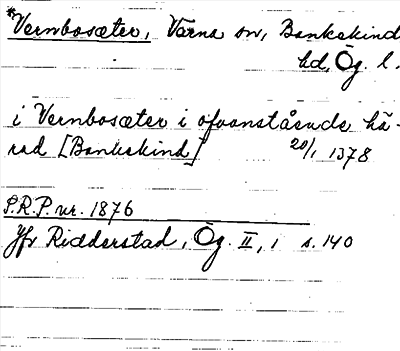 *Vernbosæter, Värna sn, Bankekind
hd, Ög. l.
i Vernbosæter i ofvanstående hä-
rad [Bankekind] 20/1 1378
S.R.P. nr. 1876
Jfr Ridderstad, Ög. II, 1 s. 140